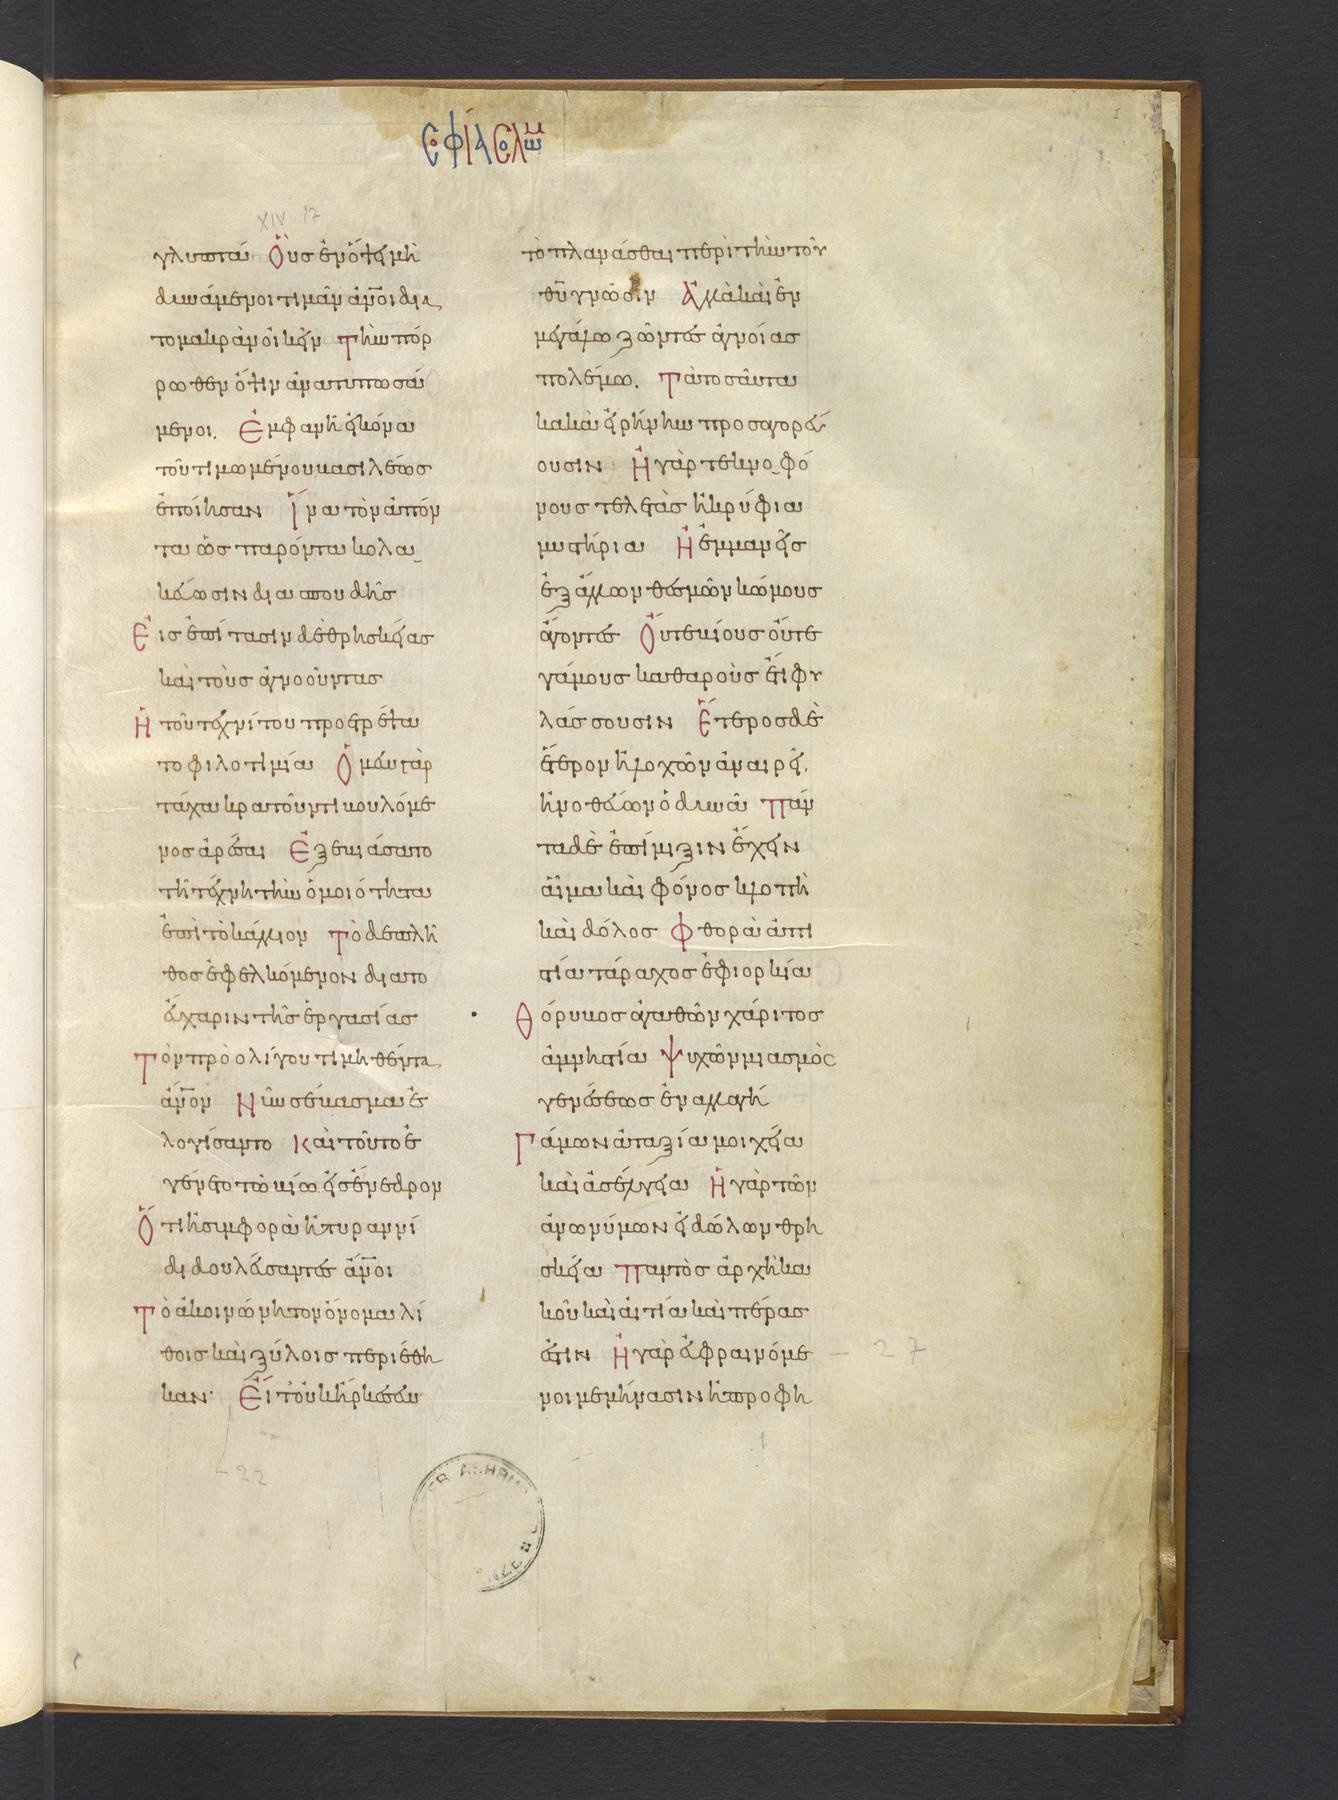 σοφία σολομῶ
XIV 17
γλυπτά Οὓς ἐν ὄψει μὴ
δυνάμενοι τιμᾶν ἄν̅οι δια
το μακρὰν οἰκεῖν Τὴν πόρ
ρωθεν ὄψιν ἀνατυπωσά
μενοι. Ἐμφανῆ εἰκόνα
τοῦ τιμωμένου βασιλέως
ἐποίησαν Ἵνα τὸν ἀπόν
τα ὡς παρόντα κολα
κεύωσιν δια σπουδῆς
Εἰς ἐπίτασιν δὲ θρησκείας
καὶ τοὺς ἀγνοοῦντας
Ἡ τοῦ τεχνίτου προετρέψα
το φιλοτιμία Ὁ μὲν γὰρ
τάχα κρατοῦντι βουλόμε
νος ἀρέσαι Ἐξεβιάσατο
τῆ τέχνη τὴν ὁμοιότητα
ἐπὶ τὸ κάλλιον Τὸ δε πλῆ
θος ἐφελκόμενον δια το
εὔχαριν τῆς ἐργασίας
Τὸν πρὸ ολίγου τιμηθέντα
ἄν̅ον Νῦν σέβασμα ἐ
λογίσαντο Καὶ τοῦτο ἐ
γένετο τῶ βίω εἰς ἔνεδρον
Ὅτι ἢ συμφορὰ ἢ τυραννί
δι δουλεύσαντες ἄν̅οι
Τὸ ἀκοινώνητον ὄνομα λί
θοις καὶ ξύλοις περιέθη
καν· Εἶτ οὐκ ἤρκεσεν
22
τὸ πλανάσθαι περὶ τὴν τοῦ
θ̅υ γνῶσιν Ἀλλὰ καὶ ἐν
μεγάλω ζῶντες ἀγνοίας
πολέμω. Τὰ τοσαῦτα
κακὰ εἰρήνην προσαγορεύ
ουσιν Ἢ γὰρ τεκνοφό
νους τελετὰς ἢ κρύφια
μυστήρια Ἢ ἐμμανεῖς
ἐξ ἄλλων θεσμῶν κώμους
ἄγοντες Οὔτε βίους οὔτε
γάμους καθαροὺς ἔτι φυ
λάσσουσιν Ἕτερος δὲ
ἕτερον ἢ λοχῶν ἀναιρεῖ,
ἢ νοθεύων ὀδυνᾶ Πάν
τα δὲ ἐπίμιξιν ἔχειν
αἷμα καὶ φόνος κλοπὴ
καὶ δόλος Φθορὰ ἀπι
στία τάραχος ἐφιορκία
Θόρυβος ἀγαθῶν χάριτος
ἀμνηστία Ψυχῶν μιασμὸς
γενέσεως ἐναλλαγή
Γάμων ἀταξία μοιχεία
καὶ ἀσέλγεια Ἡ γὰρ τῶν
ἀνωνύμων εἰδώλων θρη
σκεία Παντὸς ἀρχὴ κα
κοῦ καὶ αἰτία καὶ πέρας
ἐστιν Ἢ γὰρ εὐφραινόμε
νοι μεμήνασιν ἢ προφη
27
1